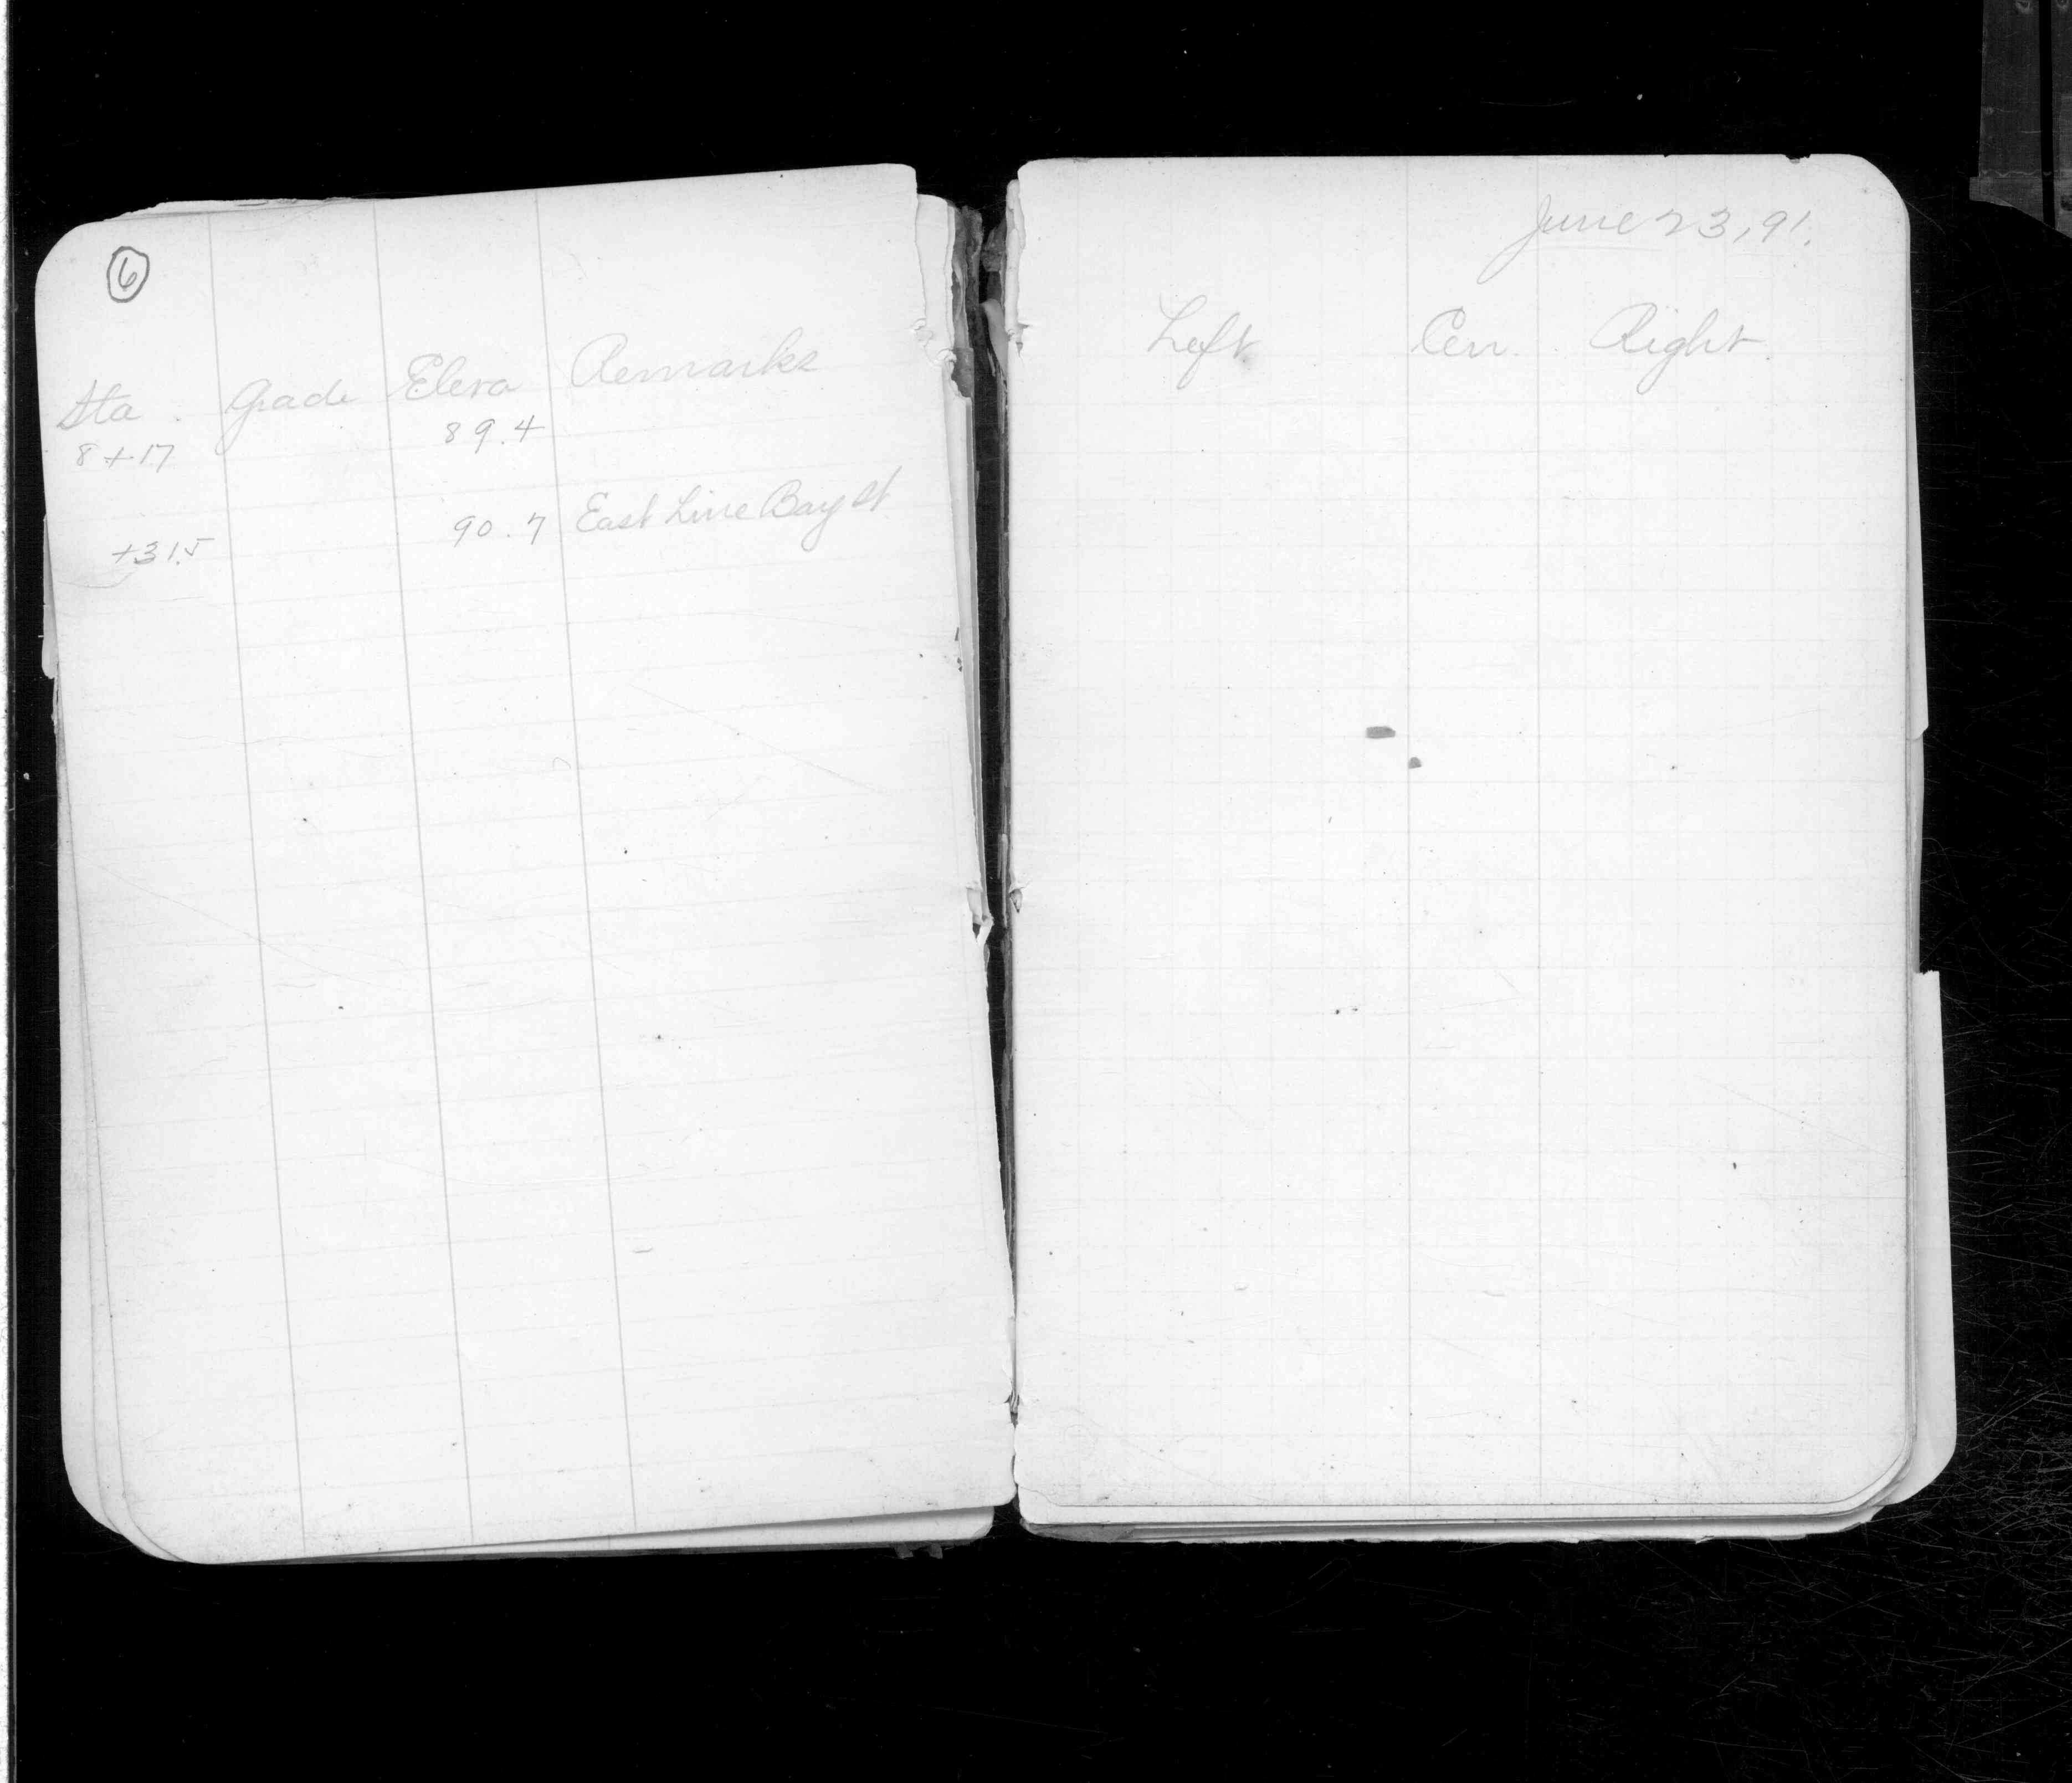 6
Sta. Grade Eleva Remarks
8+17 89.4
+31.5 90.7 East Line Bay St
June 23, 91.
Left Cen. Right.